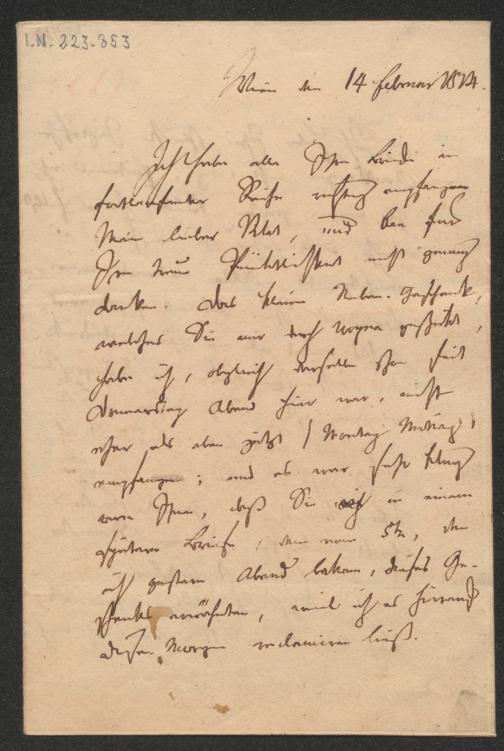 I.N. 223.853
Wien den 14 Februar 1814.
Ich habe alle Ihre Briefe in
fortlaufender Reihe richtig empfangen
Mein lieber und bin für
Ihre Pünktlichkeit nicht genug
danken. Das kleine Neben-Geschenk,
welches Sie mir durch geschickt,
habe ich, obgleich dasselbe schon seit
Donnerstag Abend hier war, nicht
eher als eben jetzt (Montag Mittag)
empfangen; und es war sehr klug
von Ihnen, daß Sie in einem
spätern Briefe, dem vom 5ten, den
ich gestern Abend bekam, dieses Ge-
schenks erwähnten, weil ich es hierauf
diesen Morgen reclamiren ließ.